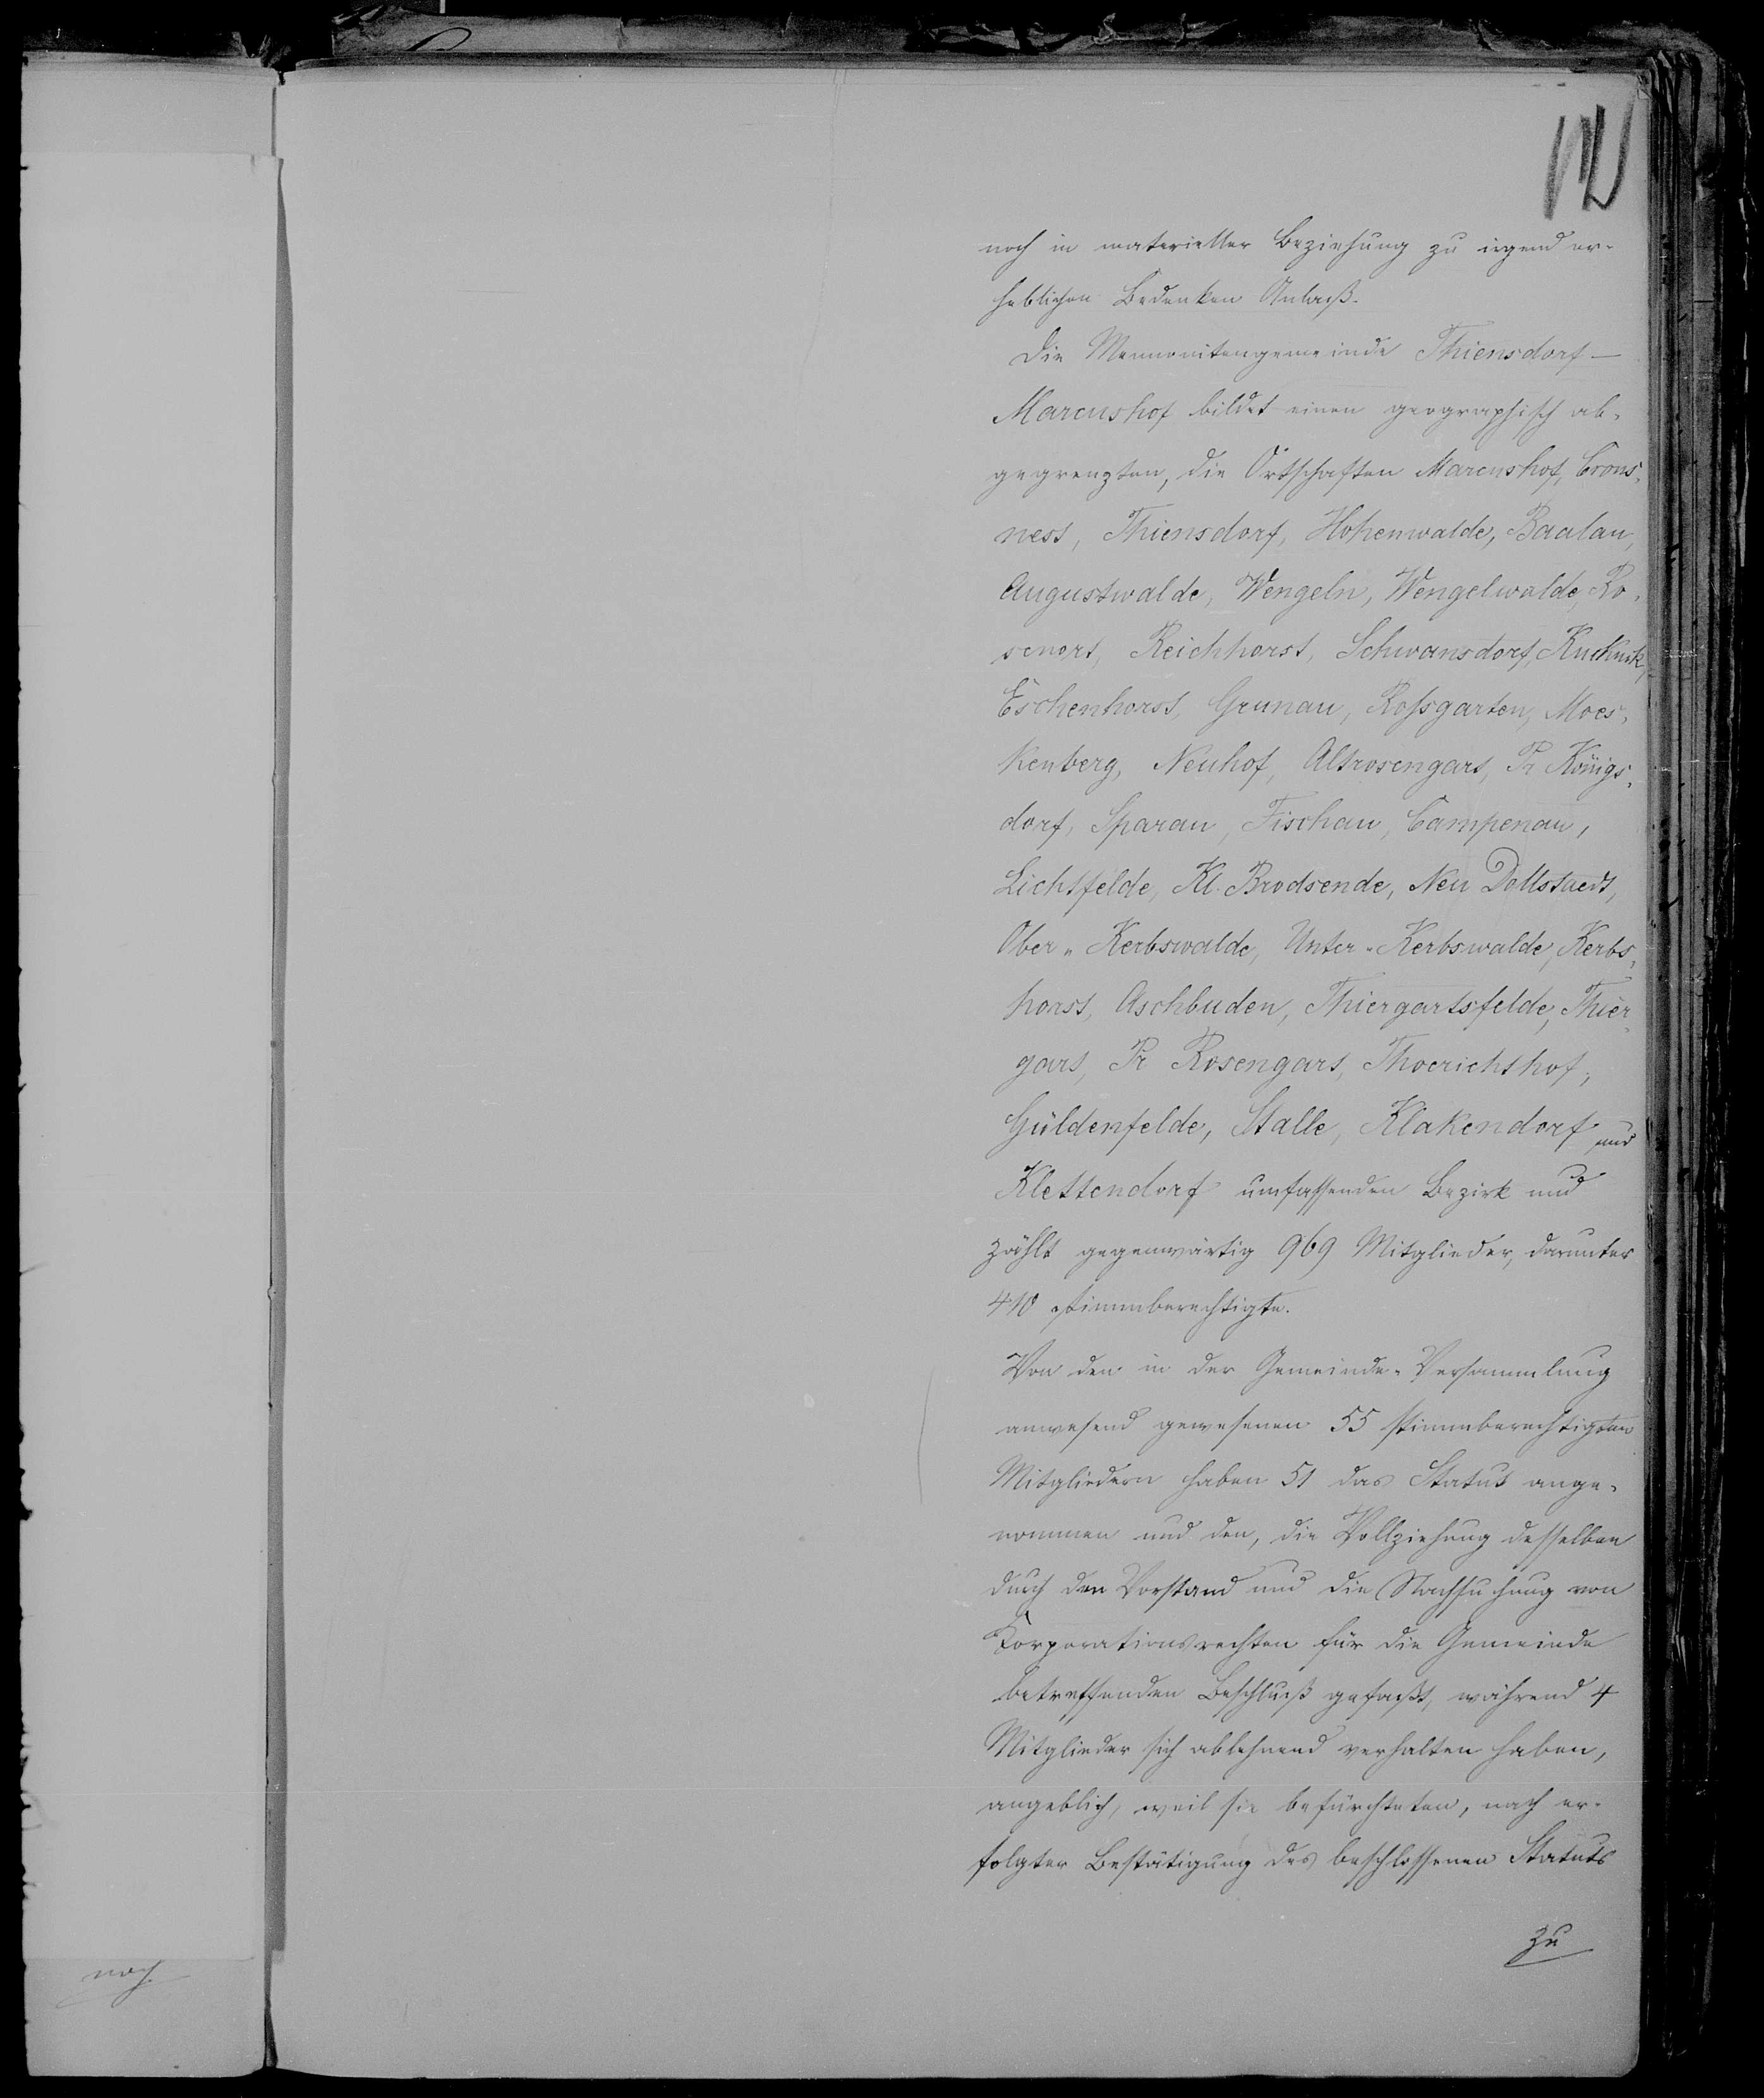 noch in materieller Beziehung zu irgend er-
heblichen Bedenken Anlaß.
Die Mennonitengemeinde Thiensdorf-
Marcushof bildet einen geographisch ab-
gegrenzten, die Ortschaften Marcushof, Crons-
ness, Thiensdorf, Hohenwalde, Baalau,
Augustwalde, Wengeln, Wengelwalde, Ro-
senort, Reichhorst, Schwansdorf, Kuckuk,
Eschenhorst, Grunau, Roßgarten, Moes-
kenberg, Neuhof, Altrosengart, Pr Königs-
dorf, Sparau, Fischau, Campenau,
Lichtfelde, Kl. Brodsende, Neu Dollstaedt,
Ober-Kerbswalde, Unter-Kerbswalde, Kerbs-
horst, Aschbuden, Thiergartsfelde, Thier-
gart, Pr Rosengart, Thoerichthof,
Güldenfelde, Stalle, Klakendorf und
Klettendorf umfassenden Bezirk und
zählt gegenwärtig 969 Mitglieder, darunter
410 stimmberechtigte.
Von den in der Gemeinde-Versammlung
anwesend gewesenen 55 stimmberechtigten
Mitgliedern haben 51 das Statut ange-
nommen und den, die Vollziehung desselben
durch den Vorstand und die Nachsuchung von
Korporationsrechten für die Gemeinde
betreffenden Beschluß gefaßt, während 4
Mitglieder sich ablehnend verhalten haben,
angeblich, weil sie befürchteten, nach er-
folgter Bestätigung des beschlossenen Statuts
zu
noch